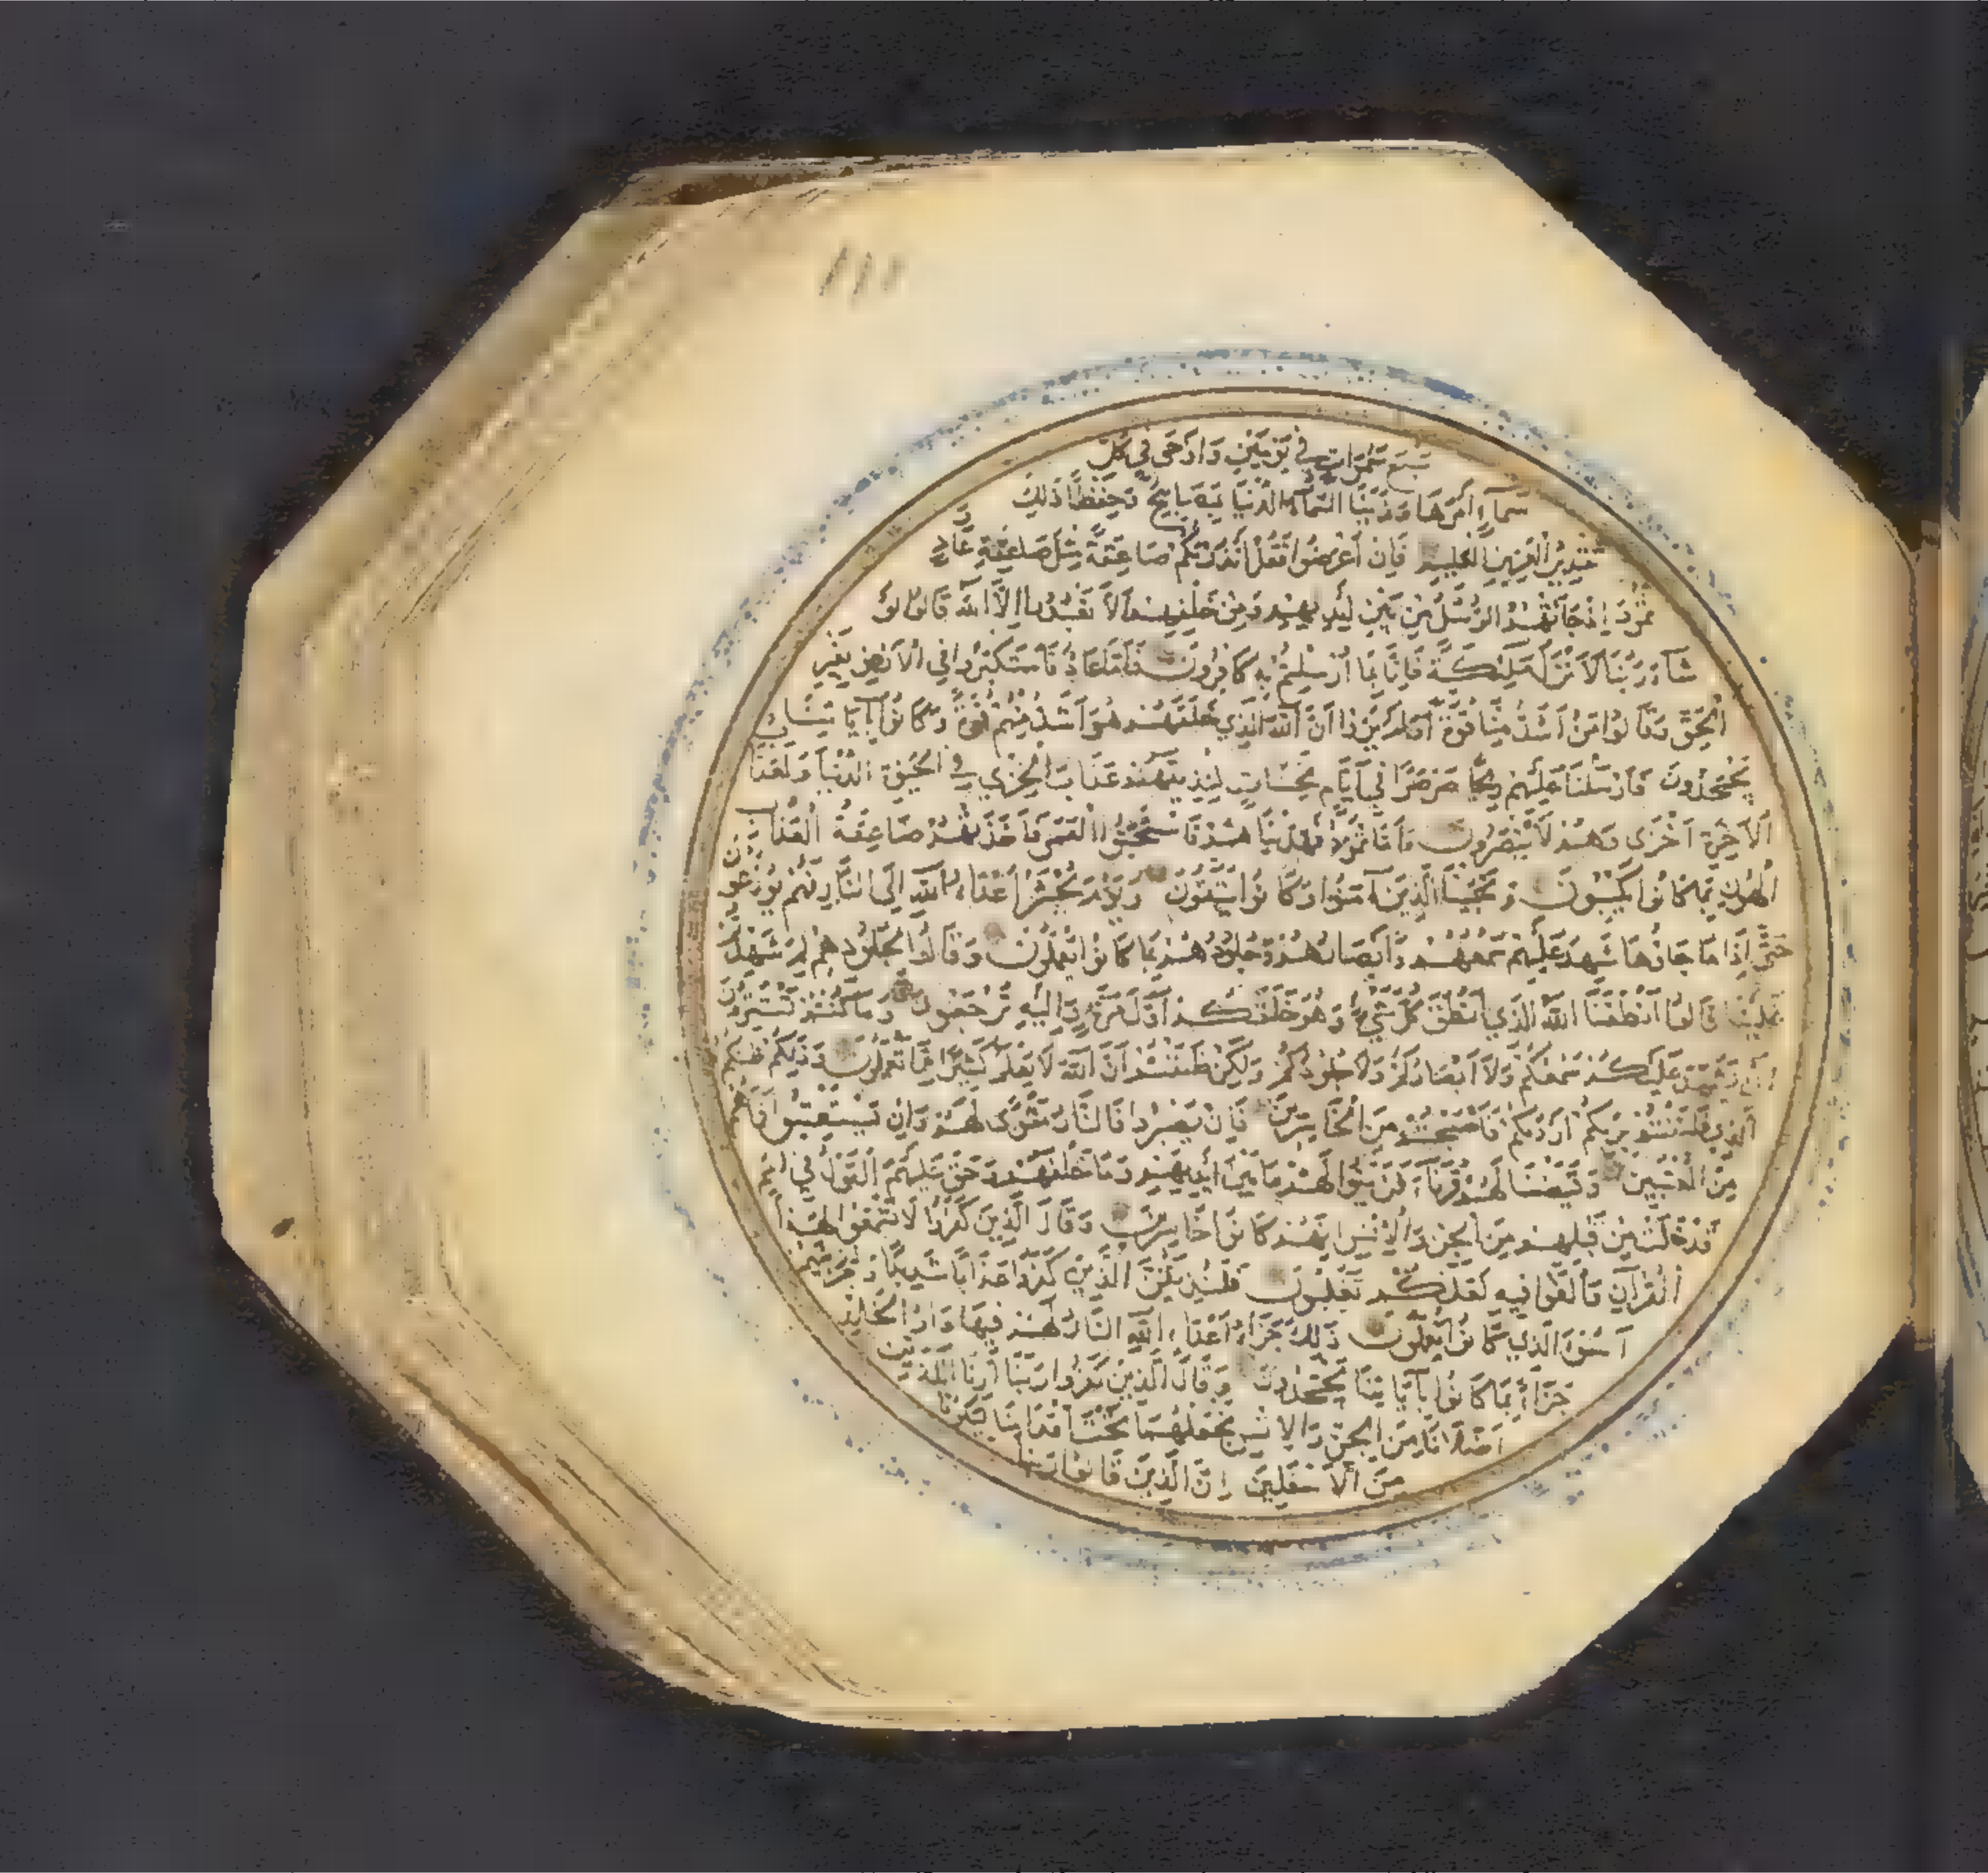 سَبْعَ سَمٰوَاتٍ فِي يَوْمَيْنِ وَأَوْحَى فِي كُلِّ
سَمَاءٍ أَمْرَهَا وَزَيَّنَّا السَّمَاءَ الدُّنْيَا بِمَصَابِيحَ وَحِفْظًا ذٰلِكَ
تَقْدِيرُ الْعَزِيزِ الْعَلِيمِ فَإِنْ أَعْرَضُوا فَقُلْ أَنْذَرْتُكُمْ صَاعِقَةً مِثْلَ صَاعِقَةِ عَادٍ وَ
ثَمُودَ إِذْ جَاءَتْهُمُ الرُّسُلُ مِنْ بَيْنِ أَيْدِيهِمْ وَمِنْ خَلْفِهِمْ أَلَّا تَعْبُدُوا إِلَّا اللّٰهَ قَالُوا لَوْ
شَاءَ رَبُّنَا لَأَنْزَلَ مَلٰئِكَةً فَإِنَّا بِمَا أُرْسِلْتُمْ بِهِ كَافِرُونَ فَأَمَّا عَادٌ فَاسْتَكْبَرُوا فِي الْأَرْضِ بِغَيْرِ
الْحَقِّ وَقَالُوا مَنْ أَشَدُّ مِنَّا قُوَّةً أَوَلَمْ يَرَوْا أَنَّ اللّٰهَ الَّذِي خَلَقَهُمْ هُوَ أَشَدُّ مِنْهُمْ قُوَّةً وَكَانُوا بِآيَاتِنَا
يَجْحَدُونَ فَأَرْسَلْنَا عَلَيْهِمْ رِيحًا صَرْصَرًا فِي أَيَّامٍ نَحِسَاتٍ لِنُذِيقَهُمْ عَذَابَ الْخِزْيِ فِي الْحَيٰوةِ الدُّنْيَا وَلَعَذَابُ
الْآخِرَةِ أَخْزَى وَهُمْ لَا يُنْصَرُونَ وَأَمَّا ثَمُودُ فَهَدَيْنَاهُمْ فَاسْتَحَبُّوا الْعَمَى فَأَخَذَتْهُمْ صَاعِقَةُ الْعَذَابِ
الْهُونِ بِمَا كَانُوا يَكْسِبُونَ وَنَجَّيْنَا الَّذِينَ آمَنُوا وَكَانُوا يَتَّقُونَ وَيَوْمَ يُحْشَرُ أَعْدَاءُ اللّٰهِ إِلَى النَّارِ فَهُمْ يُوزَعُونَ
حَتَّى إِذَا مَا جَاؤُهَا شَهِدَ عَلَيْهِمْ سَمْعُهُمْ وَأَبْصَارُهُمْ وَجُلُودُهُمْ بِمَا كَانُوا يَعْمَلُونَ وَقَالُوا لِجُلُودِهِمْ لِمَ شَهِدْتُمْ
عَلَيْنَا قَالُوا أَنْطَقَنَا اللّٰهُ الَّذِي أَنْطَقَ كُلَّ شَيْءٍ وَهُوَ خَلَقَكُمْ أَوَّلَ مَرَّةٍ وَإِلَيْهِ تُرْجَعُونَ وَمَا كُنْتُمْ تَسْتَتِرُونَ
أَنْ يَشْهَدَ عَلَيْكُمْ سَمْعُكُمْ وَلَا أَبْصَارُكُمْ وَلَا جُلُودُكُمْ وَلٰكِنْ ظَنَنْتُمْ أَنَّ اللّٰهَ لَا يَعْلَمُ كَثِيرًا مِمَّا تَعْمَلُونَ وَذٰلِكُمْ ظَنُّكُمُ
الَّذِي ظَنَنْتُمْ بِرَبِّكُمْ أَرْدَاكُمْ فَأَصْبَحْتُمْ مِنَ الْخَاسِرِينَ فَإِنْ يَصْبِرُوا فَالنَّارُ مَثْوًى لَهُمْ وَإِنْ يَسْتَعْتِبُوا فَمَا هُمْ
مِنَ الْمُعْتَبِينَ وَقَيَّضْنَا لَهُمْ قُرَنَاءَ فَزَيَّنُوا لَهُمْ مَا بَيْنَ أَيْدِيهِمْ وَمَا خَلْفَهُمْ وَحَقَّ عَلَيْهِمُ الْقَوْلُ فِي أُمَمٍ
قَدْ خَلَتْ مِنْ قَبْلِهِمْ مِنَ الْجِنِّ وَالْإِنْسِ إِنَّهُمْ كَانُوا خَاسِرِينَ وَقَالَ الَّذِينَ كَفَرُوا لَا تَسْمَعُوا لِهٰذَا
الْقُرْآنِ وَالْغَوْا فِيهِ لَعَلَّكُمْ تَغْلِبُونَ فَلَنُذِيقَنَّ الَّذِينَ كَفَرُوا عَذَابًا شَدِيدًا وَلَنَجْزِيَنَّهُمْ
أَسْوَأَ الَّذِي كَانُوا يَعْمَلُونَ ذٰلِكَ جَزَاءُ أَعْدَاءِ اللّٰهِ النَّارُ لَهُمْ فِيهَا دَارُ الْخُلْدِ
جَزَاءً بِمَا كَانُوا بِآيَاتِنَا يَجْحَدُونَ وَقَالَ الَّذِينَ كَفَرُوا رَبَّنَا أَرِنَا الَّذَيْنِ
أَضَلَّانَا مِنَ الْجِنِّ وَالْإِنْسِ نَجْعَلْهُمَا تَحْتَ أَقْدَامِنَا لِيَكُونَا
مِنَ الْأَسْفَلِينَ إِنَّ الَّذِينَ قَالُوا رَبُّنَا